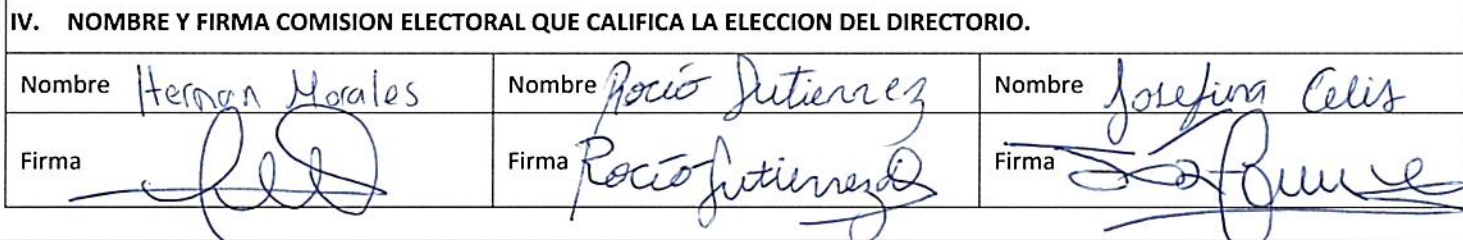 IV. NOMBRE Y FIRMA COMISION ELECTORAL QUE CALIFICA LA ELECCION DEL DIRECTORIO.
Nombre Hernan Morales Nombre Rocío Gutierrez Nombre Josefina Celis
Firma Firma Rocío Gutierrez Firma